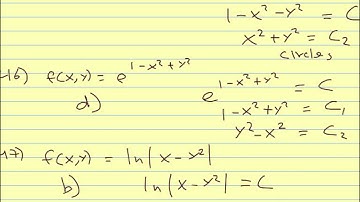 1-x²-y² = C
x²+y² = C₂
circles
46) f(x,y) = e^(1-x²+y²)
d)
e^(1-x²+y²) = C
1-x²+y² = C₁
y²-x² = C₂
47) f(x,y) = ln|x-y²|
b) ln|x-y²| = C